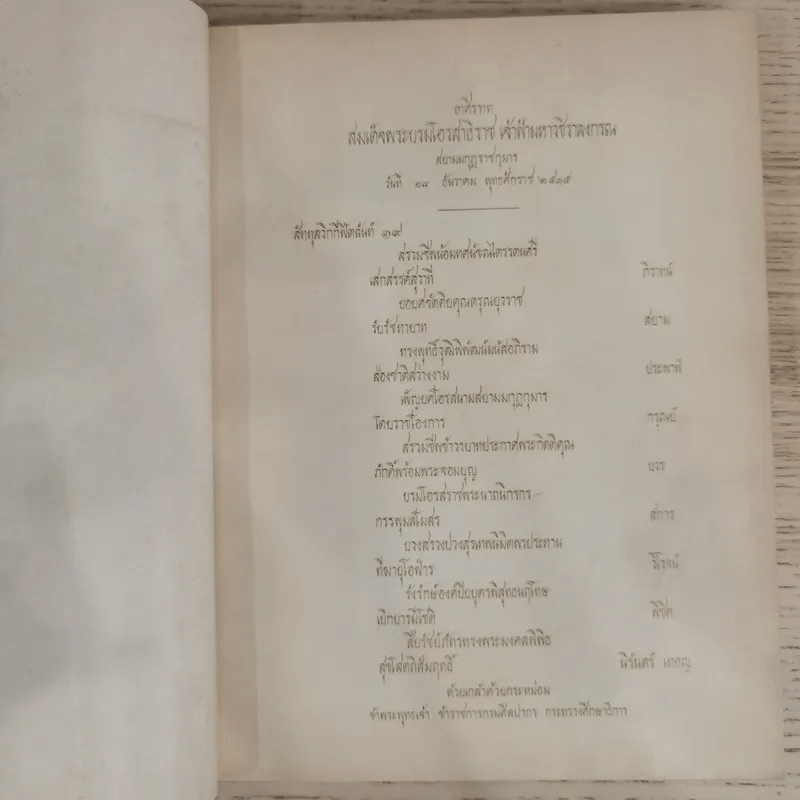 อาศิรวาท
สมเด็จพระบรมโอรสาธิราช เจ้าฟ้ามหาวชิราลงกรณ
สยามมกุฎราชกุมาร
วันที่ ๒๘ ธันวาคม พุทธศักราช ๒๕๑๕
สัททุลวิกกีฬิตฉันท์ ๑๙
สรวมชีพน้อมทศนัขณไตรรตนศรี
เสกสรรค์สุวาที ภิราทน์
ยอยศขัตติยคุณดรุณยุวราช
รับรัชทายาท สยาม
ทรงพุทธิ์วุฒิพิพัฒน์มนัสอภิราม
ส่องชาติสว่างงาม ประพาฬ
เพ็ญยศโอรสนามสยามมกุฎกุมาร
โดยราชโองการ กรุณย์
สรวมชีพข้าวรบาทประกาศพระกิตติคุณ
ภักดิ์พร้อมพระจอมบุญ บวร
บรมโอรสราชพระนาถนิกรกร -
กรรพุมสโมสร สการ
บวงสรวงปวงสุรเทพนิมิตพรประทาน
ทีฆายุโอฬาร วิโรจน์
รังรักษ์องค์ปิยบุตรพิสุทธนฤโทษ
เบิกบารมีโชติ พิชิต
สืบรัชย์ภัทรทรงพระมงคลพิพิธ
สุขโสตถิสัมฤทธิ์ นิรันดร์ เทอญ
ด้วยเกล้าด้วยกระหม่อม
ข้าพระพุทธเจ้า ข้าราชการกรมศิลปากร กระทรวงศึกษาธิการ